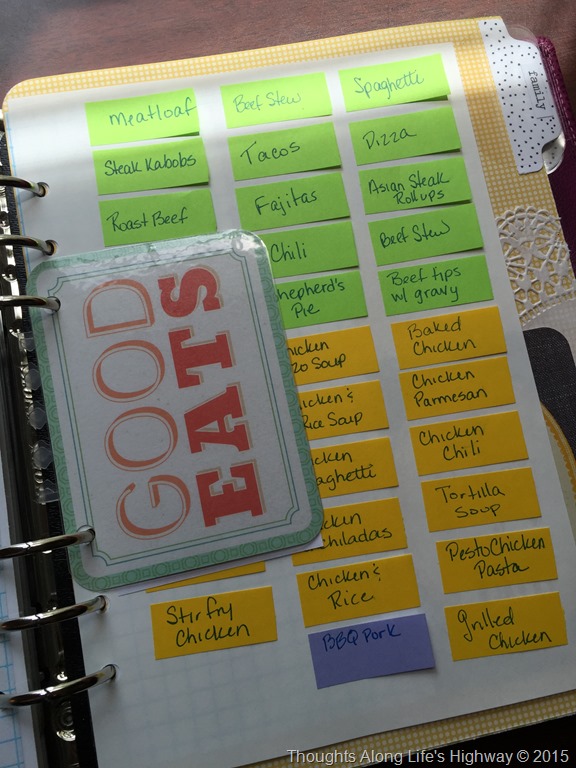 family
Meatloaf
Beef Stew
Spaghetti
Steak Kabobs
Tacos
Pizza
Roast Beef
Fajitas
Asian Steak
Rollups
Chili
Beef Stew
hepherd's
Pie
Beef tips
w/ gravy
GOOD
EATS
hicken
zo Soup
Baked
Chicken
icken &
Rice Soup
Chicken
Parmesan
icken
aghetti
Chicken
Chili
cken
chiladas
Tortilla
Soup
Chicken &
Rice
Pesto Chicken
Pasta
Stir fry
Chicken
BBQ Pork
grilled
Chicken
Thoughts Along Life's Highway © 2015